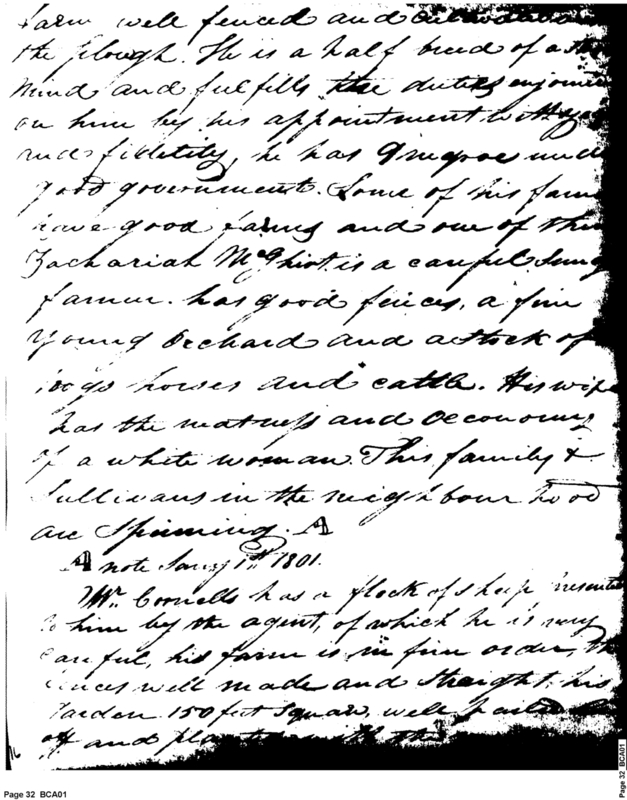 farm well fenced and cultivated
the plough. He is a half breed of a
mind and fulfills the duties enjoined
on him by his appointment with
and fidelity, he has 9 negroes under
good government. Some of his family
have good farms and one of them
Zachariah McGhirt is a careful snug
farmer. has good fences, a fine
young orchard and a stock of
hogs horses and cattle. His wife
has the neatness and oeconomy
of a white woman. This family &
Sullivans in the neighbourhood
are spinning. A
A note Jany 1st 1801.
Mr. Cornells has a flock of sheep presented
to him by the agent, of which he is very
careful, his farm is in fine order, the
fences well made and straight, his
garden 150 feet square, well
off and planted with the
16
Page 32 BCA01
Page 32 BCA01